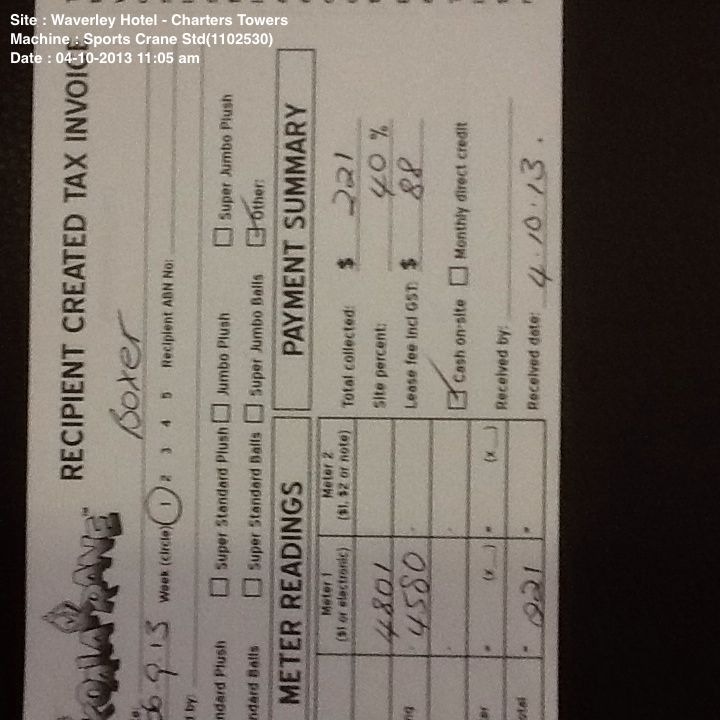 Site : Waverley Hotel - Charters Towers
Machine : Sports Crane Std(1102530)
Date : 04-10-2013 11:05 am
RECIPIENT CREATED TAX INVOICE
Boxer
Week (circle) 1 2 3 4 5 Recipient ABN No:
d by:
ndard Plush Super Standard Plush Jumbo Plush Super Jumbo Plush
ndard Balls Super Standard Balls Super Jumbo Balls Other:
METER READINGS
Meter 1 Meter 2
($1 or electronic) ($1, $2 or note)
4801
4580
(x ) (x )
221
PAYMENT SUMMARY
Total collected: $ 221
Site percent: 40 %
Lease fee Incl GST: $ 88
Cash on-site Monthly direct credit
Received by:
Received date: 4.10.13.